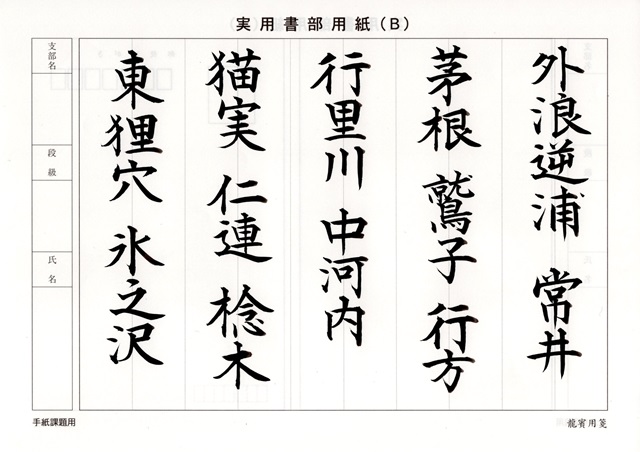 実用書部用紙(B)
外浪逆浦 常井
茅根 鷲子 行方
行里川 中河内
猫実 仁連 棯木
東狸穴 氷之沢
支部名
段級
氏名
手紙課題用
龍賓用箋